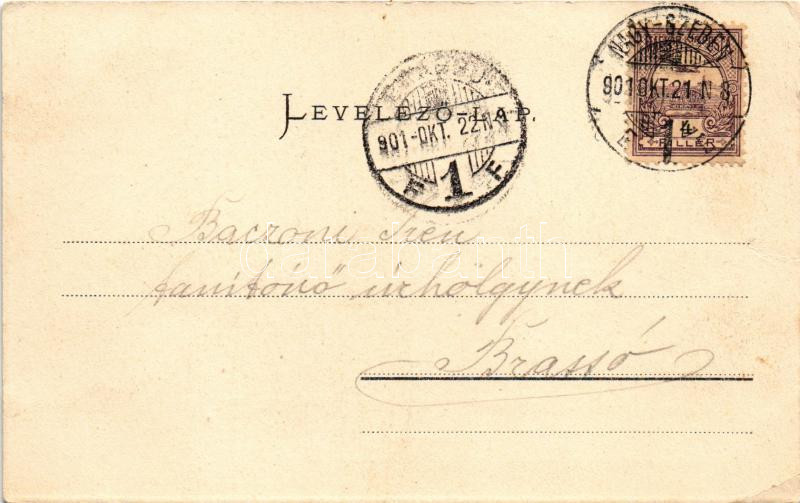 NAGY-SZEBEN
901 OKT. 21. N 8
4
FILLÉR
1
LEVELEZŐ-LAP.
901-OKT. 22 N 9
1 F.
Baczoni Irén
tanítónő úrhölgynek
Brassó
darabanth